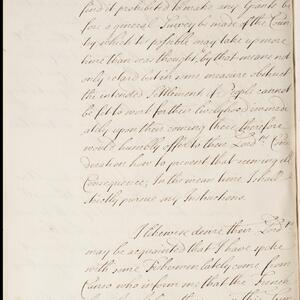 find it prohibited to make any Grants be
fore a general Survey be made of the Coun
try which 'tis possible may take up more
time than was thought, by that means not
only retard but in some measure obstruct
the intended Settlement if People cannot
be set to work for their livelyhood immedi
ately upon their coming there therefore
would humbly offer to their Lordps Consi
deration how to prevent that seeming ill
Consequence; In the mean time I shall
strictly pursue my Instructions.
I likewise desire their Lordps
may be acquainted that I have spoke
with some Fishermen lately come from
Canso who inform me that the French